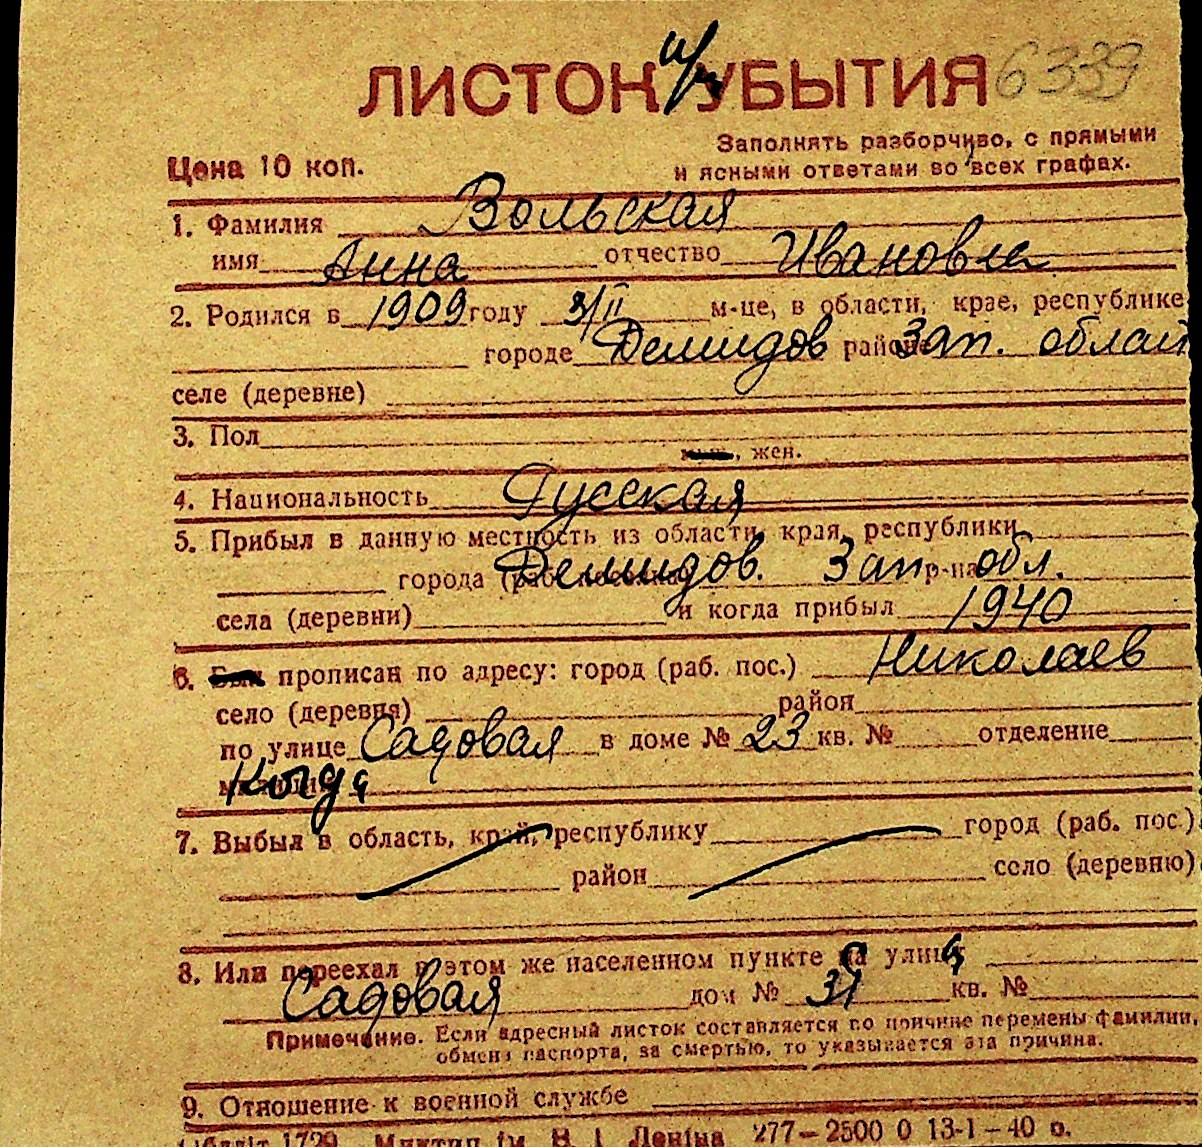 ЛИСТОК УБЫТИЯ 6339
Заполнять разборчиво, с прямыми
Цена 10 коп. и ясными ответами во всех графах.
1. Фамилия Вольская
имя Анна отчество Ивановна
2. Родился в 1909 году 3/II м-це, в области, крае, республике
городе Демидов районе Зап. облас
селе (деревне)
3. Пол
муж., жен.
4. Национальность Русская
5. Прибыл в данную местность из области, края, республики
города (раб. поселка) Демидов. Зап. р-на обл.
села (деревни) и когда прибыл 1940
6. Был прописан по адресу: город (раб. пос.) Николаев
село (деревня) район
по улице Садовая в доме № 23 кв. № отделение
милиции
7. Выбыл в область, край, республику город (раб. пос.)
район село (деревню)
8. Или переехал в этом же населенном пункте на улицу
Садовая дом № кв. №
Примечание. Если адресный листок составляется по причине перемены фамилии,
обмена паспорта, за смертью, то указывается эта причина.
9. Отношение к военной службе
Обллит 1729 Миктип ім. В. І. Леніна 277—2500 0 13-1—40 о.